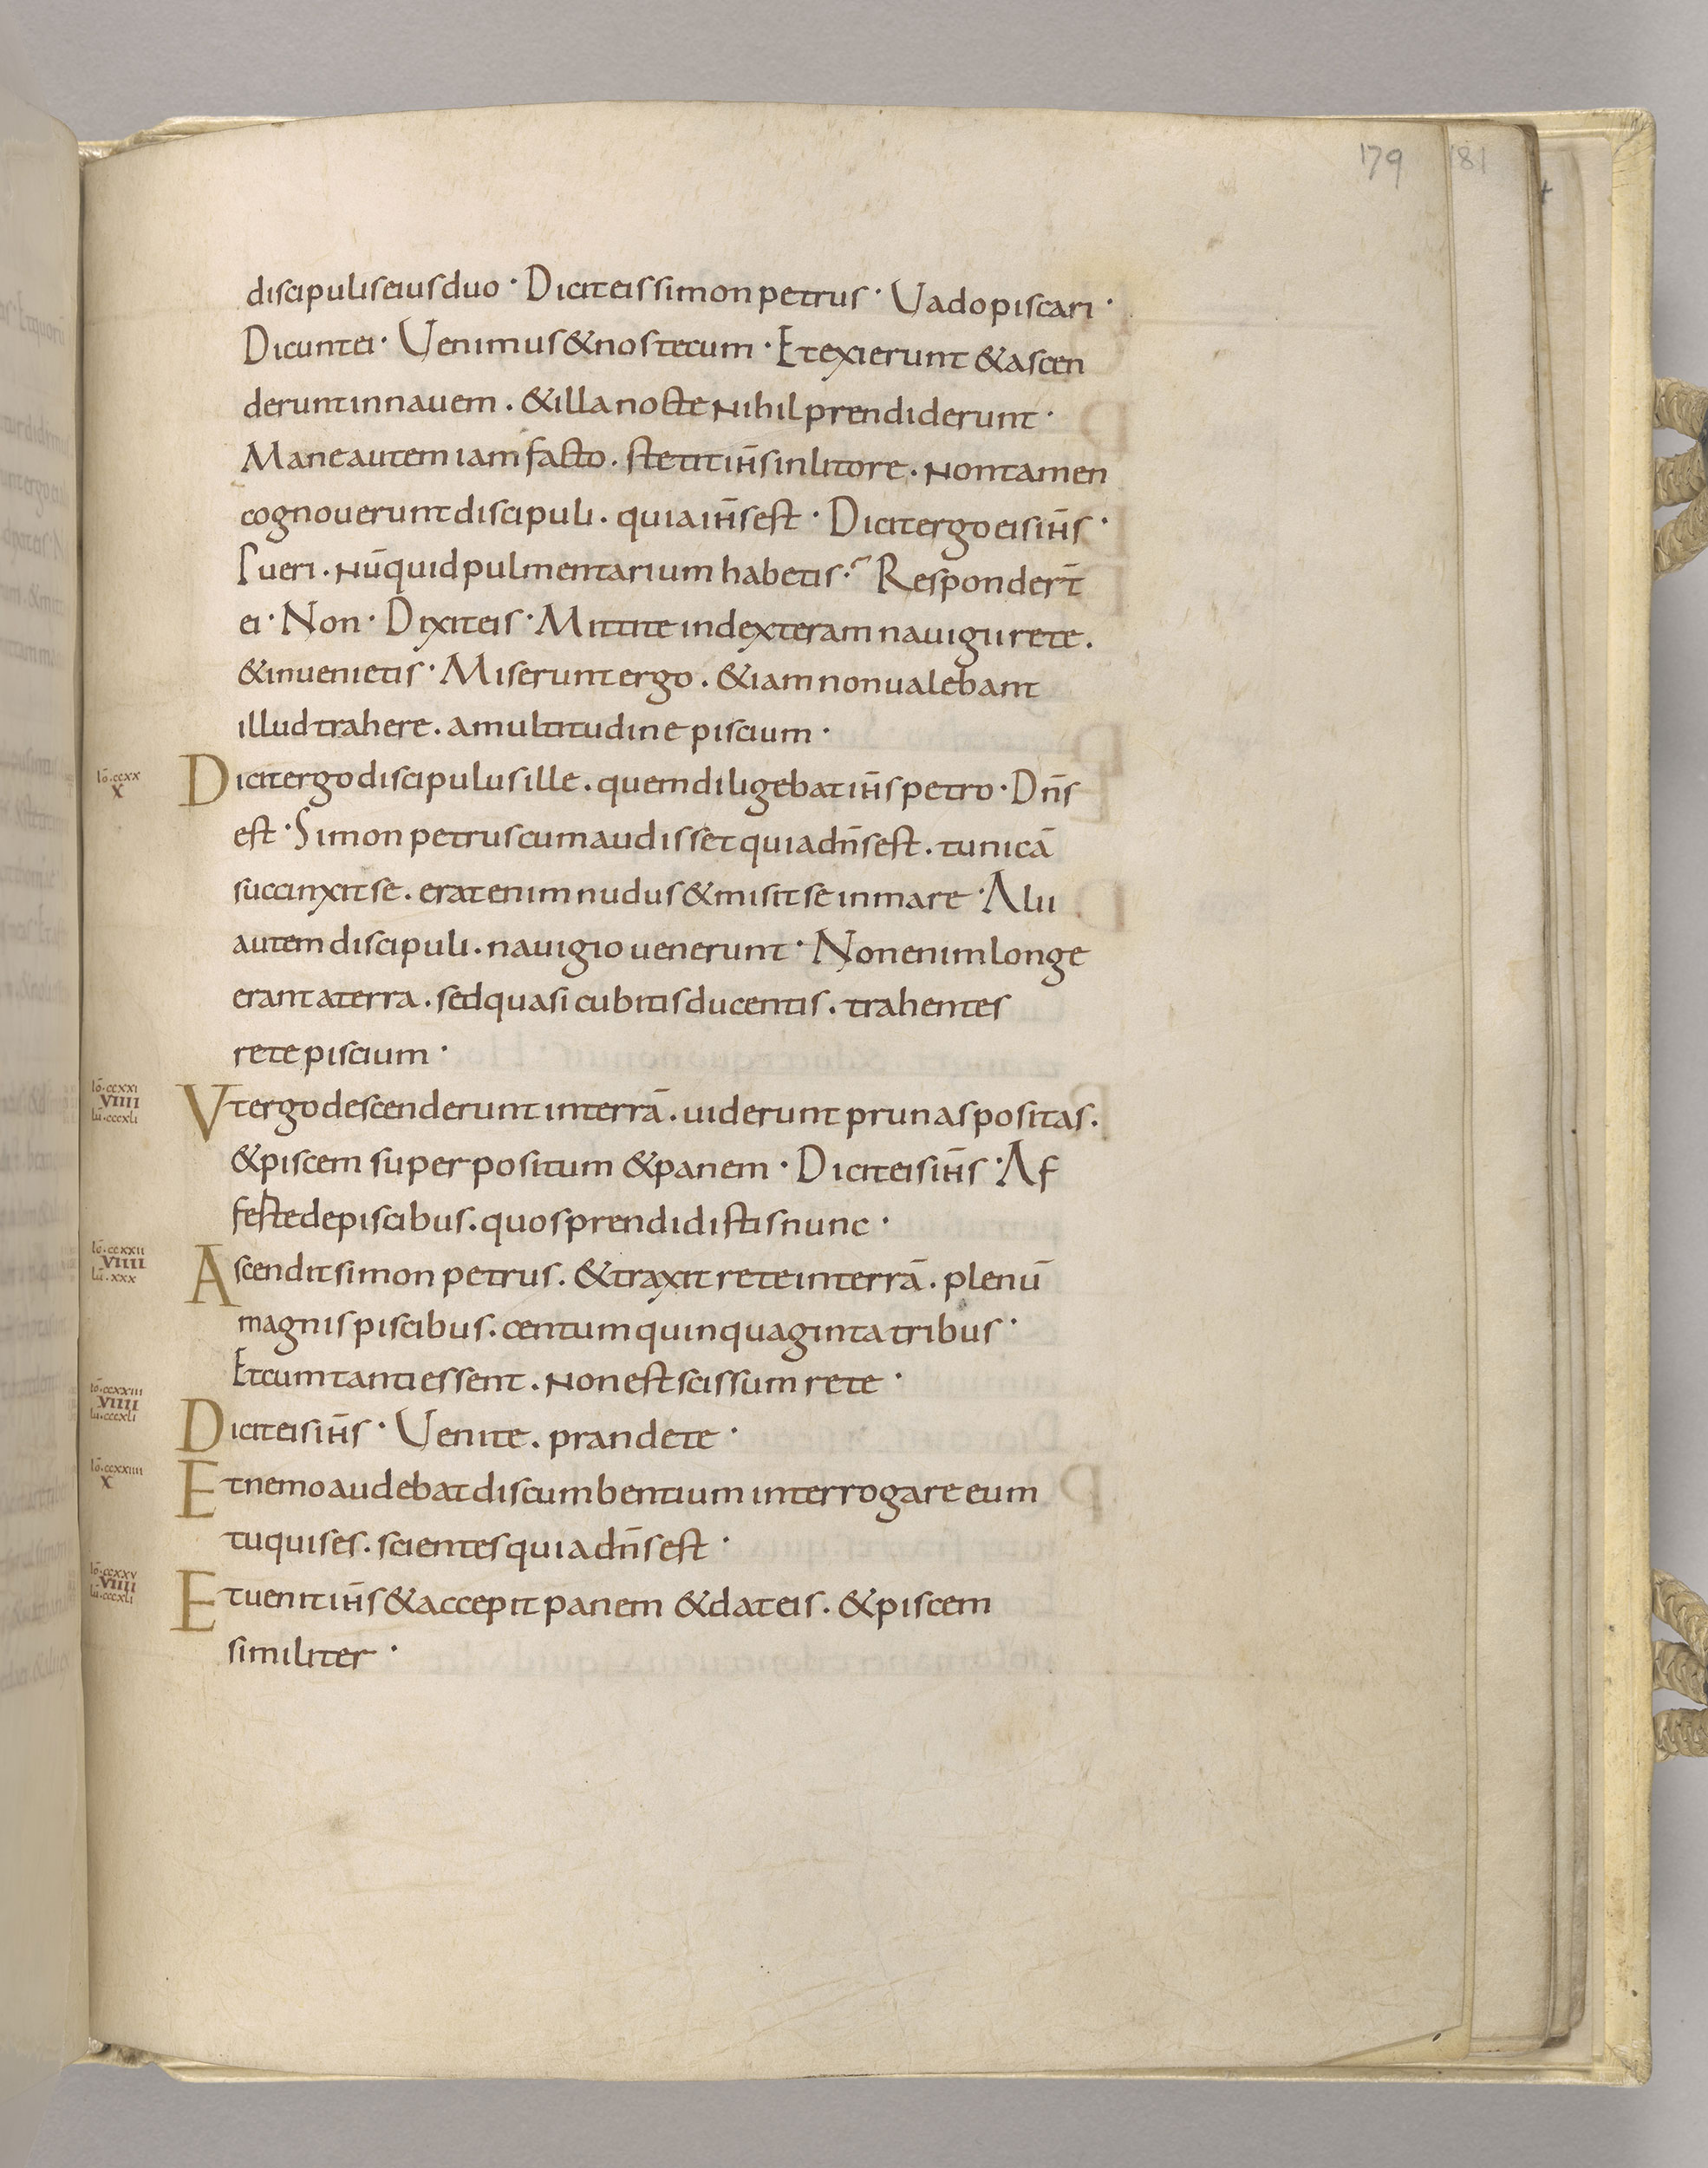 179 181
discipuli eius duo · Dicit eis simon petrus · Uado piscari ·
Dicunt ei · Uenimus & nos tecum · Et exierunt & ascen
derunt in nauem . & illa nocte nihil prendiderunt ·
Mane autem iam facto . stetit ih̄s in litore . non tamen
cognouerunt discipuli . quia ih̄s est · Dicit ergo eis ih̄s ·
Pueri . nū quid pulmentarium habetis · Responder̄t
ei · Non · Dixit eis · Mittite in dexteram nauigii rete .
& inuenietis · Miserunt ergo . & iam non ualebant
illud trahere . a multitudine piscium ·
Iō · ccxx
X
Dicit ergo discipulus ille . quem diligebat ih̄s petro · Dn̄s
est · Simon petrus cum audisset quia dn̄s est . tunicā
succinxit se . erat enim nudus & misit se in mare · Alii
autem discipuli . nauigio uenerunt · Non enim longe
erant a terra . sed quasi cubitis ducentis . trahentes
rete piscium ·
Iō · ccxxi
VIIII
lū · cccxli
Vt ergo descenderunt in terrā . uiderunt prunas positas .
& piscem super positum & panem · Dicit eis ih̄s · Af
ferte de piscibus . quos prendidistis nunc ·
Iō · ccxxii
VIIII
lū · xxx
Ascendit simon petrus . & traxit rete in terrā . plenū
magnis piscibus . centum quinquaginta tribus ·
Et cum tanti essent . non est scissum rete ·
Iō · ccxxiii
VIIII
lū · cccxli
Dicit eis ih̄s · Uenite . prandete ·
Iō · ccxxiiii
X
Et nemo audebat discumbentium interrogare eum
tu quis es . scientes quia dn̄s est ·
Iō · ccxxv
VIIII
lū · cccxli
Et uenit ih̄s & accepit panem & dat eis . & piscem
similiter ·